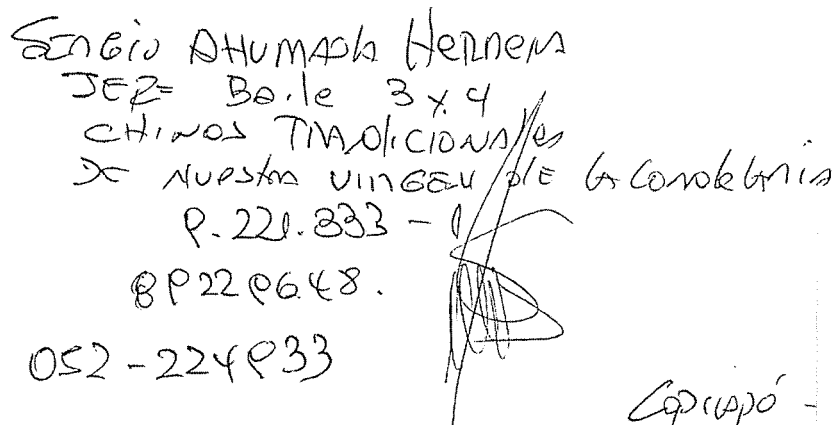 Sergio AHUMADA Herrera
JEFE Baile 3 y 4
CHINOS TRADICIONALES
DE NUESTRA VIRGEN DE LA CANDELARIA
9.221.333-1
89229648.
052-224933
Copiapó -